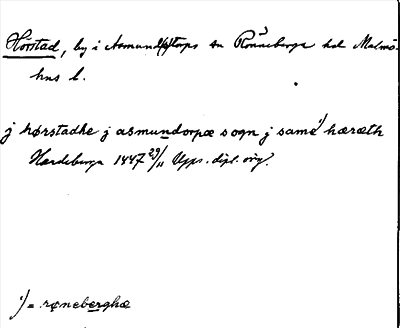 Hörstad, by i Asmund(s)torps sn Rönnebergs hd Malmö-
hus l.
j hørstadhe j asmundorpæ sogn j samę¹⁾ hæræth
Hardeberga 1447 29/11 Upps. dipl. orig.
¹⁾ = røneberghæ